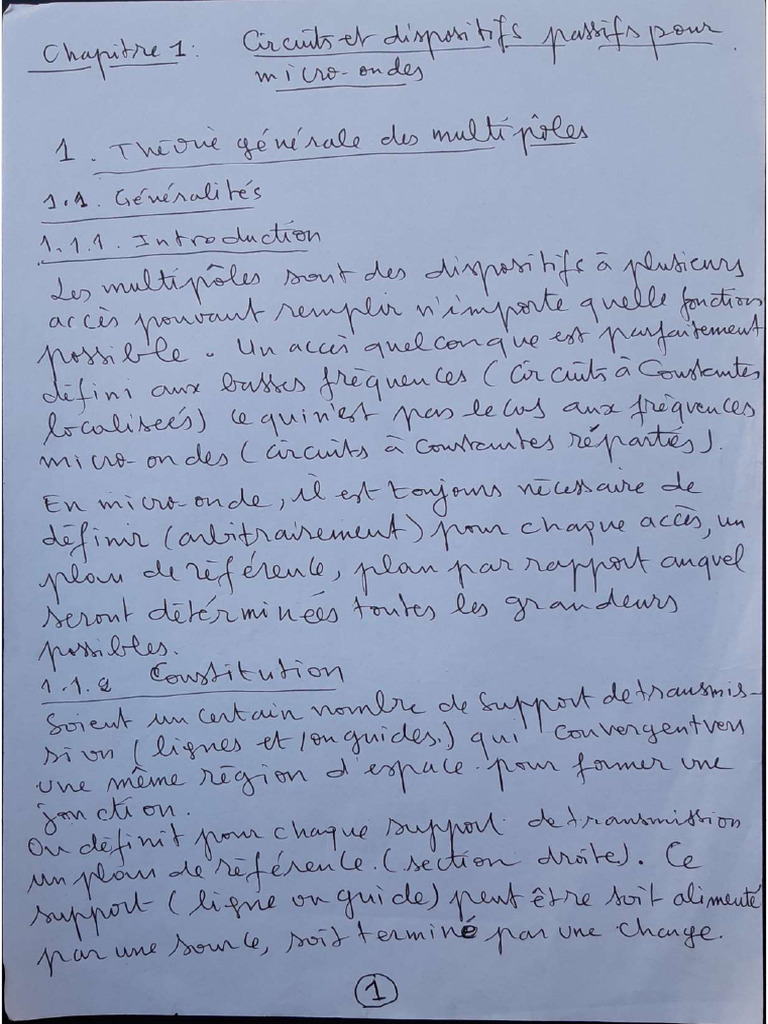 Chapitre 1: Circuits et dispositifs passifs pour
micro-ondes
1. Théorie générale des multipôles
1.1. Généralités
1.1.1. Introduction
Les multipôles sont des dispositifs à plusieurs
accès pouvant remplir n'importe quelle fonction
possible. Un accès quelconque est parfaitement
défini aux basses fréquences (circuits à constantes
localiseés) ce qui n'est pas le cas aux fréquences
micro-ondes (circuits à constantes réparties).
En micro-onde, il est toujours nécessaire de
définir (arbitrairement) pour chaque accès, un
plan de référence, plan par rapport auquel
seront déterminées toutes les grandeurs
possibles.
1.1.2 Constitution
Soient un certain nombre de support de transmis-
sion (lignes et/ou guides.) qui convergent vers
une même région d'espace pour former une
jonction.
On définit pour chaque support de transmission
un plan de référence. (section droite). Ce
support (ligne ou guide) peut être soit alimenté
par une source, soit terminé par une charge.
1